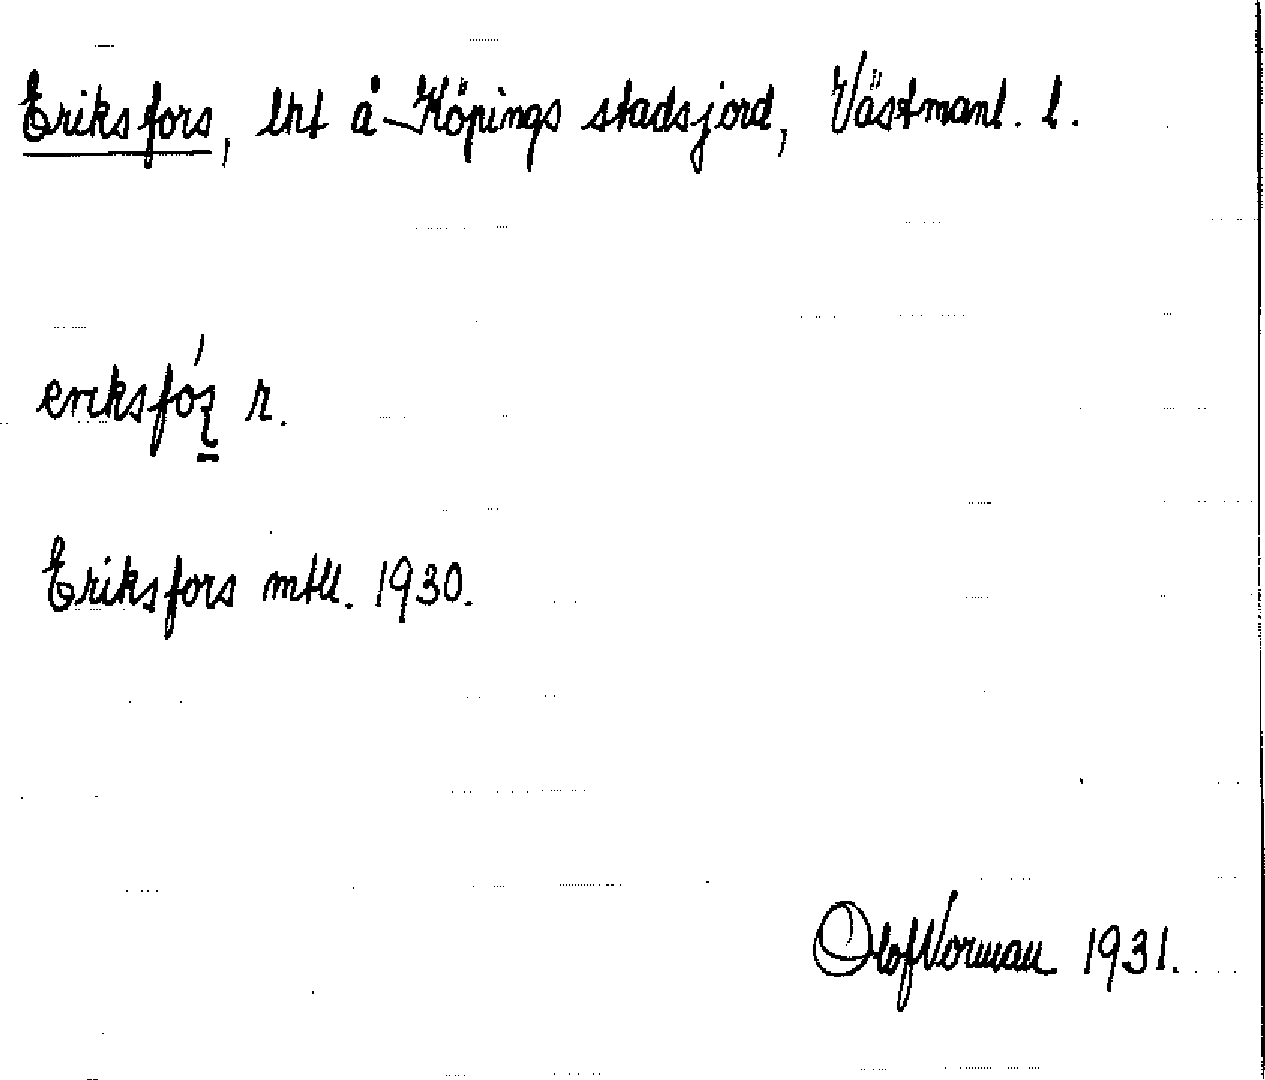 Eriksfors, lht å Köpings stadsjord, Västmanl. l.
Eriksfors mtll. 1930.
Olof Norman 1931.